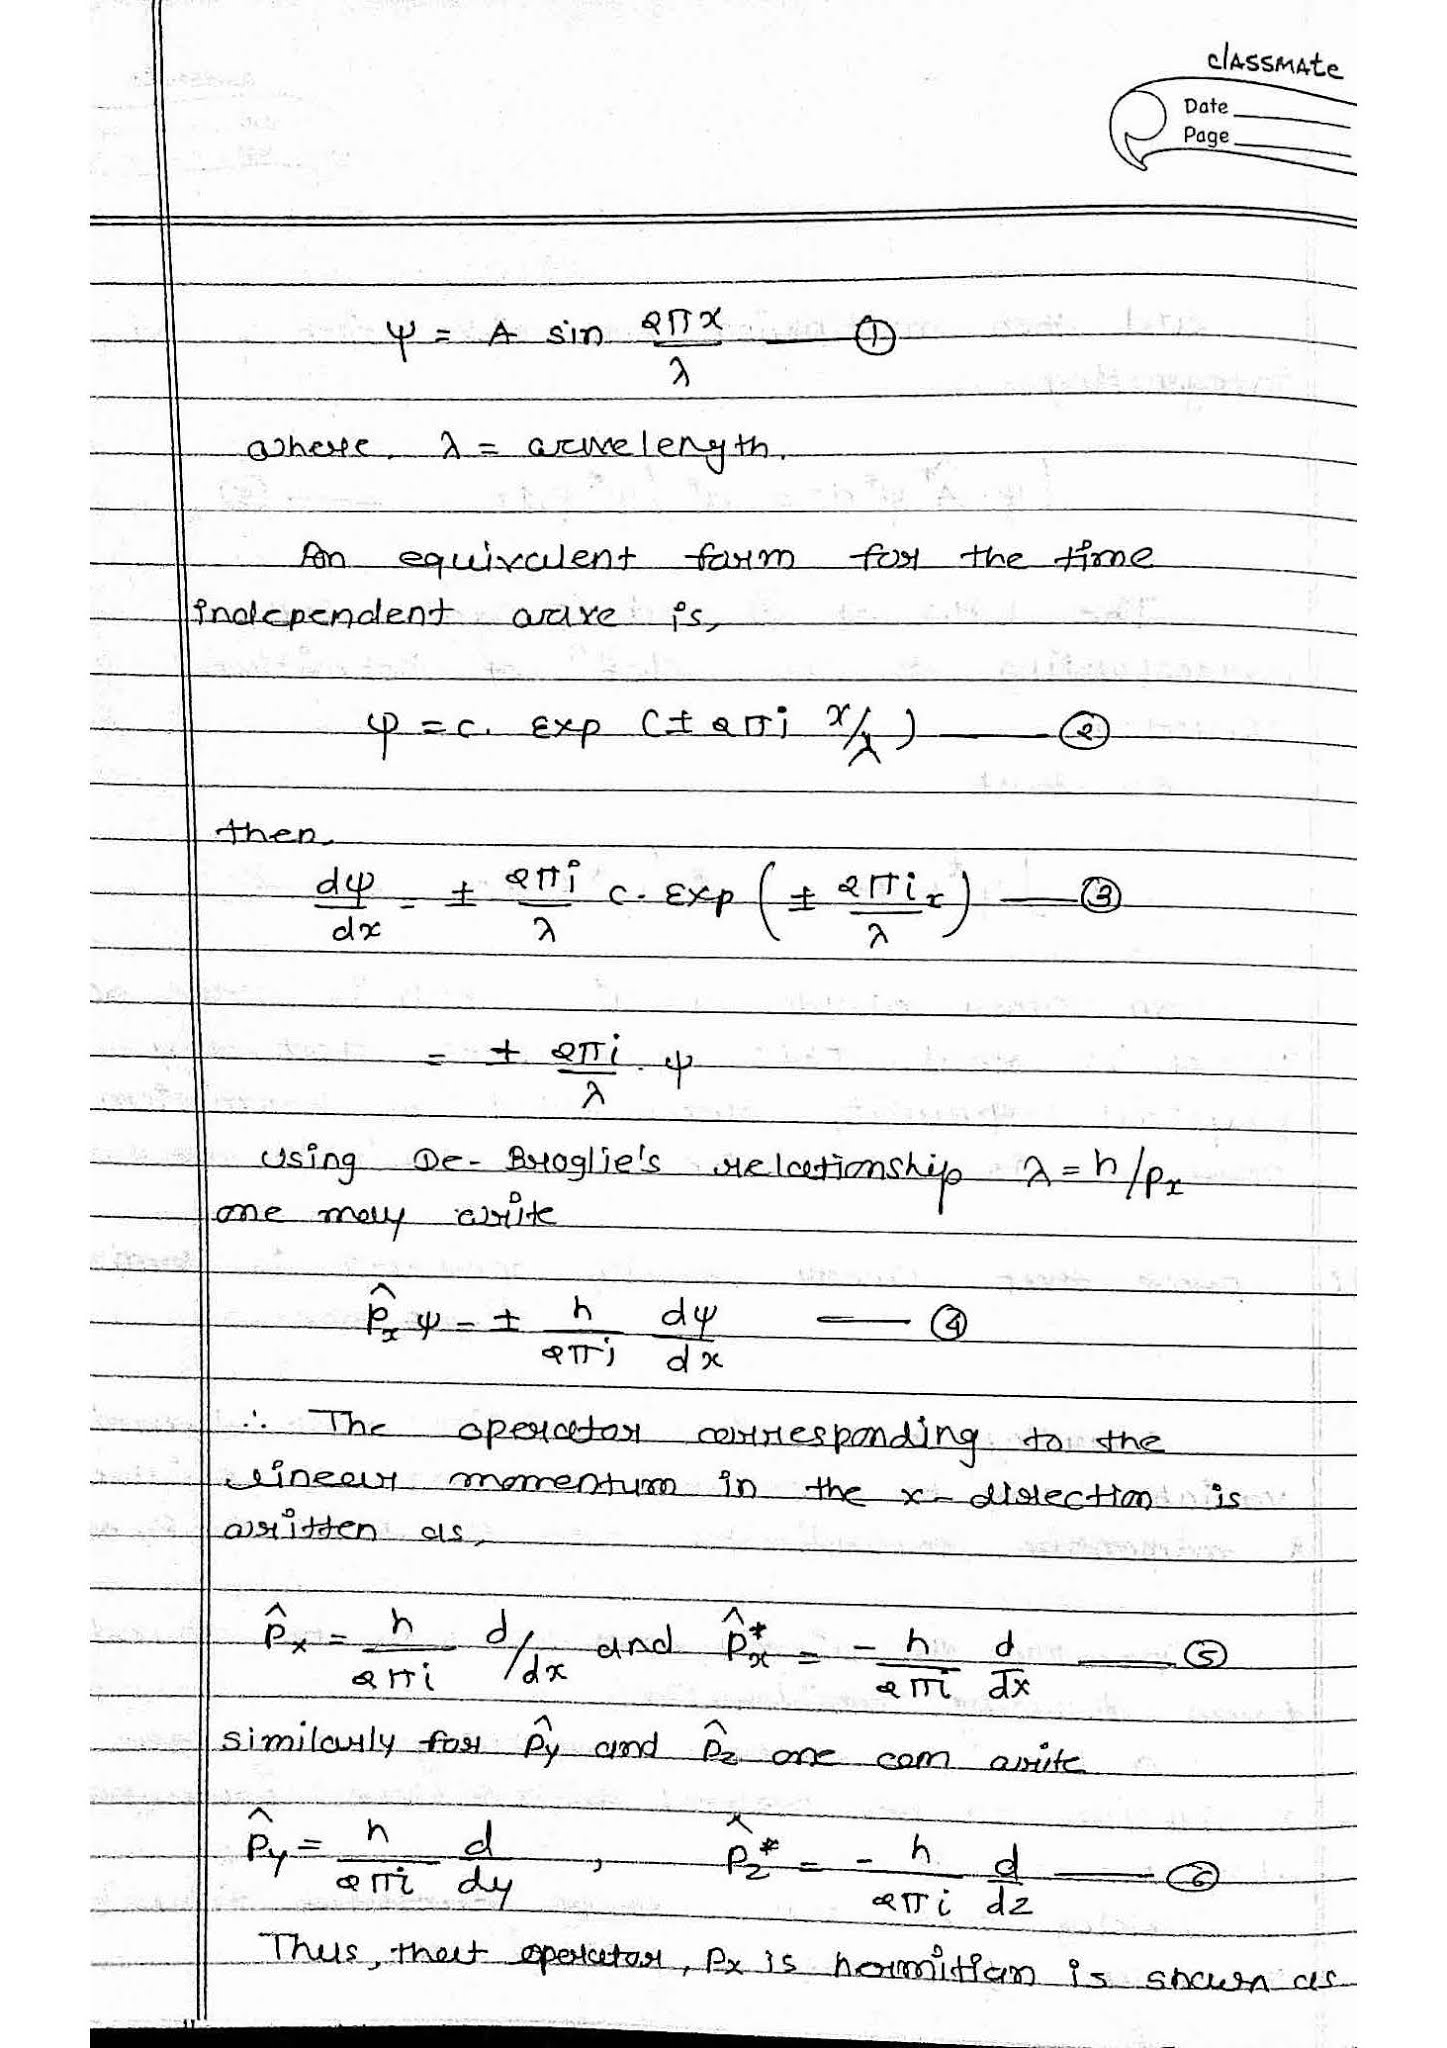 classmate
Date
Page
ψ = A sin 2πx/λ — ①
where, λ = wavelength.
An equivalent form for the time
independent wave is,
ψ = c. Exp (± 2πi x/λ) — ②
then,
dψ/dx = ± 2πi/λ c. Exp (± 2πi/λ x) — ③
= ± 2πi/λ . ψ
using De-Broglie's relationship λ = h/px
one may write
p̂x ψ = ± h/2πi dψ/dx — ④
∴ The operator corresponding to the
linear momentum in the x-direction is
written as,
p̂x = h/2πi d/dx and p̂x* = - h/2πi d/dx — ⑤
similarly for p̂y and p̂z one can write
p̂y = h/2πi d/dy , p̂z* = - h/2πi d/dz — ⑥
Thus, that operator, px is hermitian is shown as